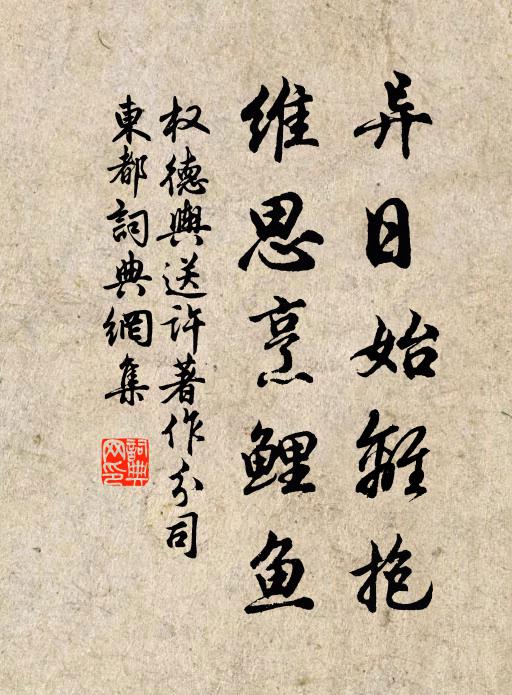 异日始離抱
维思烹鲤鱼
权德舆送许著作分司
東都詞典網集
詞典网印